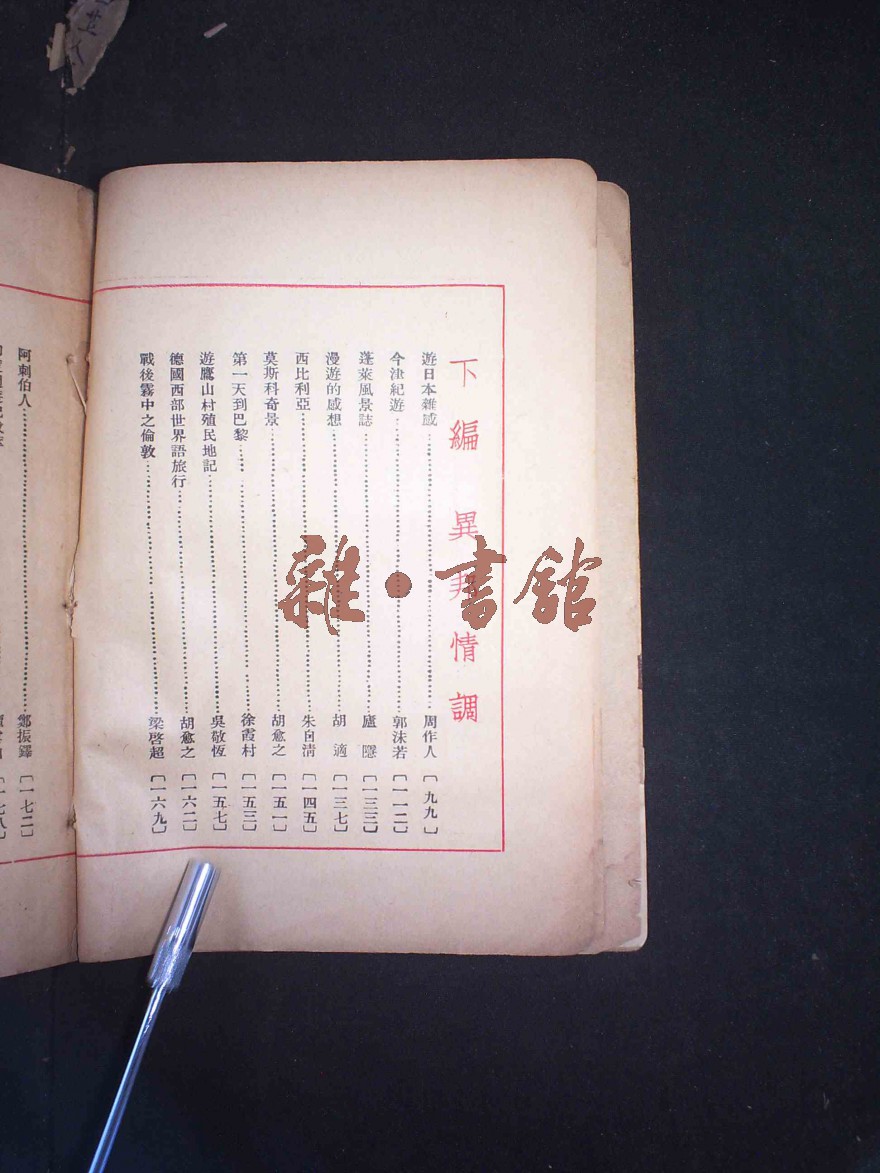 下編 異邦情調
遊日本雜感 周作人 [九九]
今津紀遊 郭沫若 [一一二]
蓬萊風景誌 廬隱 [一三三]
漫遊的感想 胡適 [一三七]
西比利亞 朱自清 [一四五]
莫斯科奇景 胡愈之 [一五一]
第一天到巴黎 徐霞村 [一五三]
遊鷹山村殖民地記 吳敬恆 [一五七]
德國西部世界語旅行 胡愈之 [一六二]
戰後霧中之倫敦 梁啓超 [一六九]
阿剌伯人 鄭振鐸 [一七二]
[一七八]
雜·書館